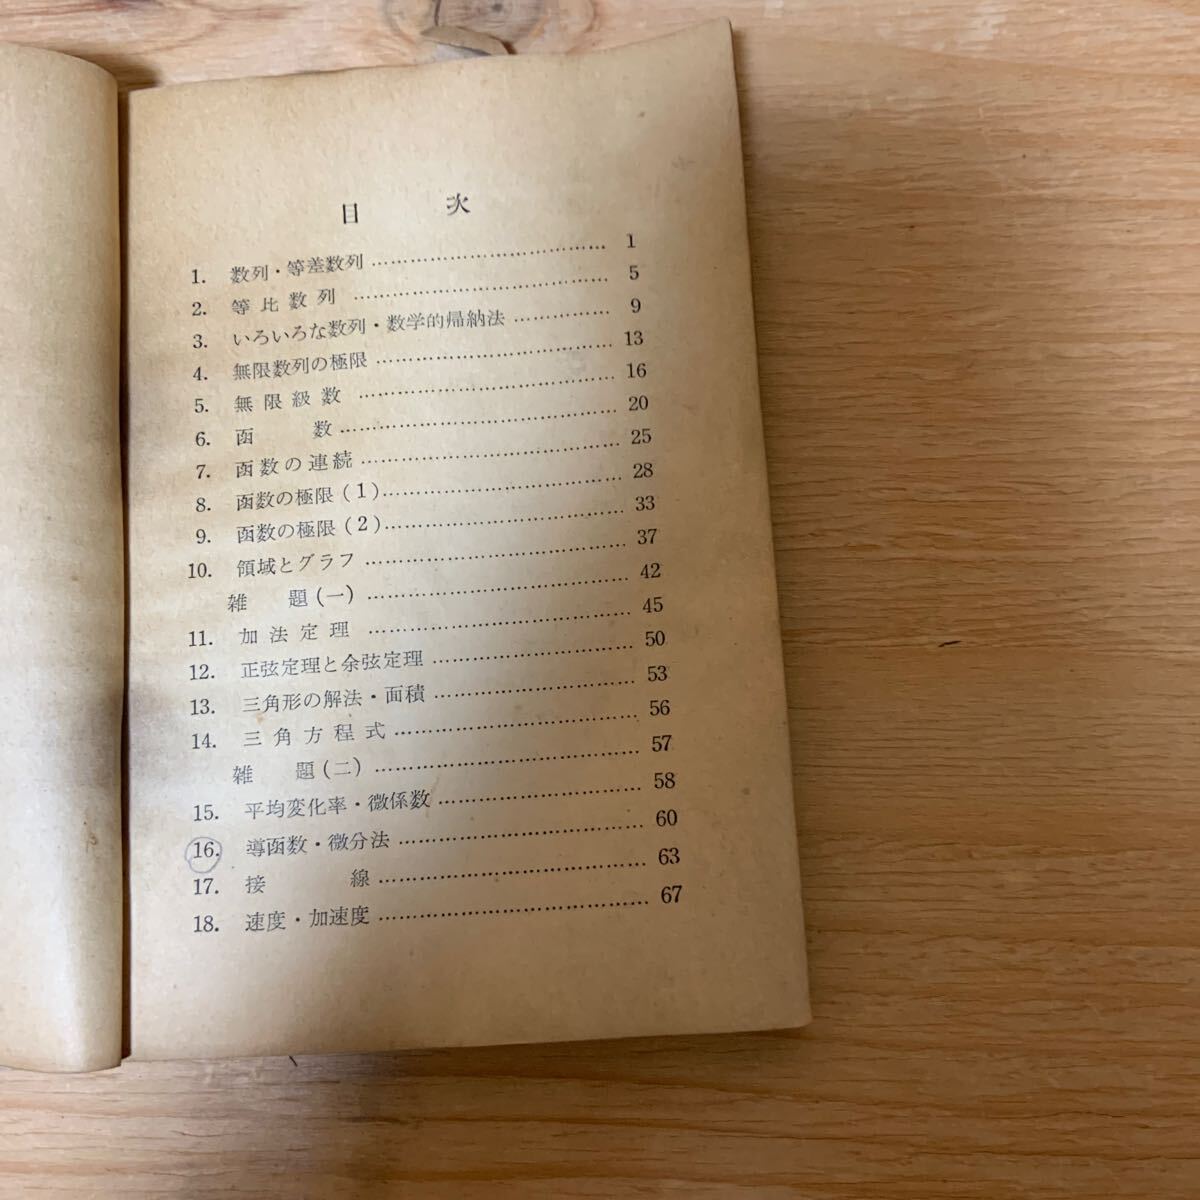 目 次
1. 数列・等差数列 …………………………… 1
2. 等比数列 …………………………… 5
3. いろいろな数列・数学的帰納法 …………… 9
4. 無限数列の極限 …………………………… 13
5. 無限級数 …………………………… 16
6. 函数 …………………………… 20
7. 函数の連続 …………………………… 25
8. 函数の極限(1) …………………………… 28
9. 函数の極限(2) …………………………… 33
10. 領域とグラフ …………………………… 37
雑題(一) …………………………… 42
11. 加法定理 …………………………… 45
12. 正弦定理と余弦定理 …………………… 50
13. 三角形の解法・面積 …………………… 53
14. 三角方程式 …………………………… 56
雑題(二) …………………………… 57
15. 平均変化率・微係数 …………………… 58
16. 導函数・微分法 …………………………… 60
17. 接線 …………………………… 63
18. 速度・加速度 …………………………… 67